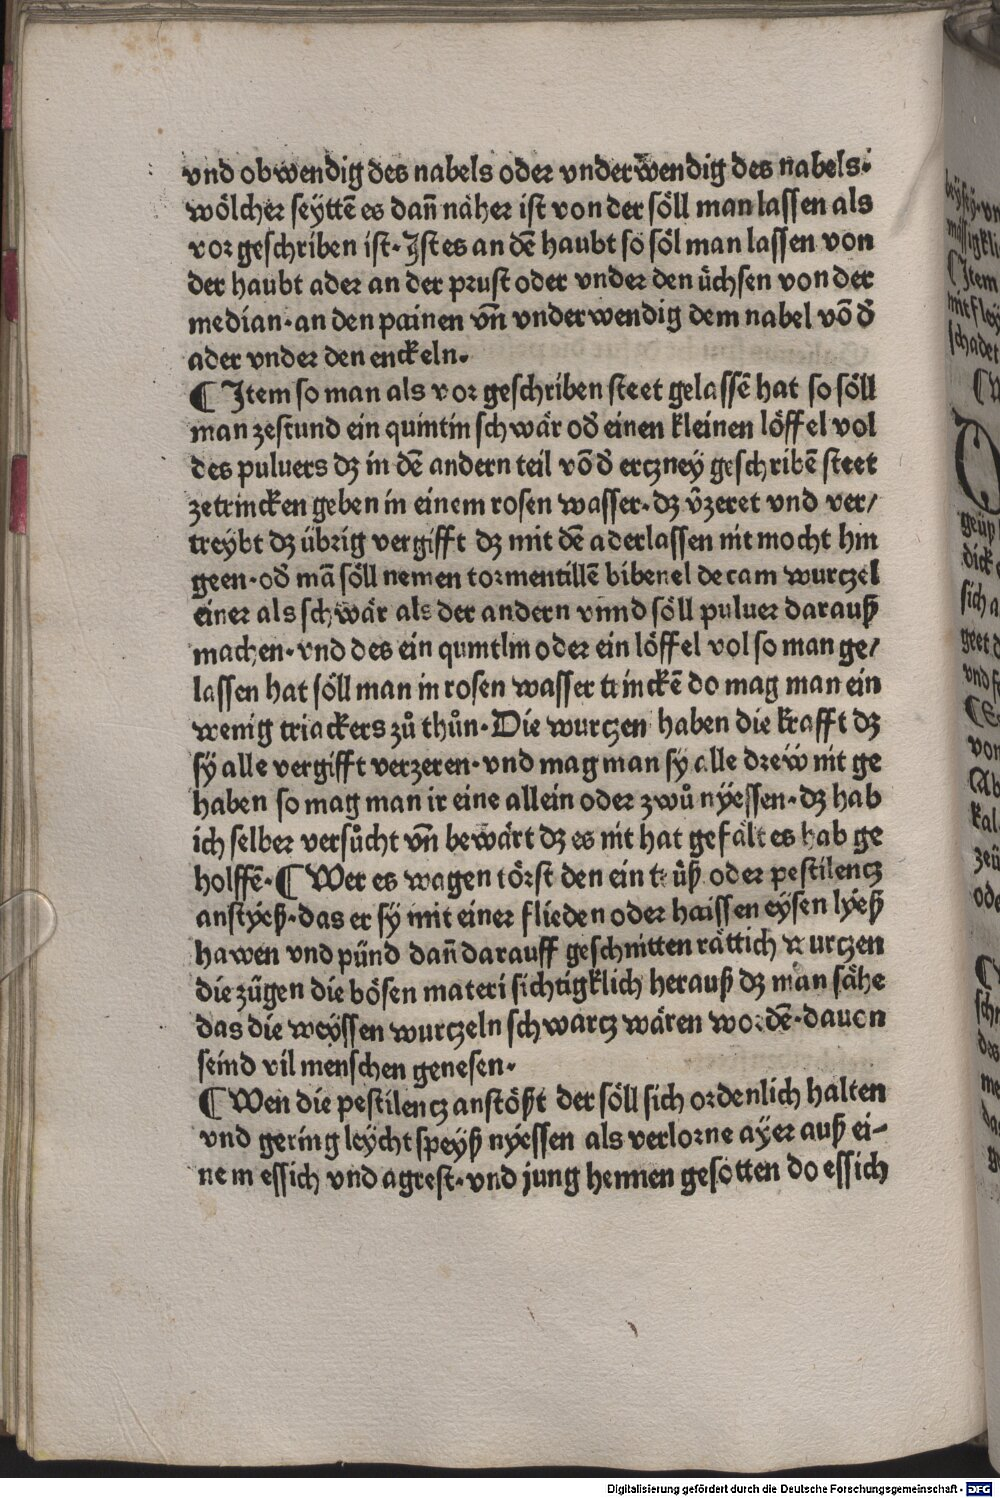 vnd obwendig des nabels oder vnderwendig des nabels·
wölcher seyttē es dañ näher ist von der söll man lassen als
vor geschriben ist· Ist es an dē haubt so söl man lassen von
der haubt ader an der prust oder vnder den üchsen von der
median· an den painen vñ vnderwendig dem nabel vō d̄
ader vnder den enckeln·
¶ Item so man als vor geschriben steet gelassē hat so söll
man zestund ein quintin schwär od̄ einen kleinen löffel vol
des puluers dz in dē andern teil vō d̄ erczney geschribē steet
zetrincken geben in einem rosen wasser· dz v̄zeret vnd ver/
treybt dz übrig vergifft dz mit dē aderlassen nit mocht hin
geen· od̄ mā söll nemen tormentillē bibenel decam wurczel
einer als schwär als der andern vnnd söll puluer darauß
machen· vnd des ein qumtlm oder ein löffel vol so man ge/
lassen hat söll man in rosen wasser trinckē do mag man ein
wenig triackers zů thůn· Die wurtzen haben die krafft dz
sy alle vergifft verzeren· vnd mag man sy alle drew nit ge
haben so mag man ir eine allein oder zwů nyessen· dz hab
ich selber versůcht vñ bewärt dz es nit hat gefält es hab ge
holffē· ¶ Wer es wagen törst den ein trüß oder pestilencz
anstyeß· das er sy mit einer flieden oder haissen eysen lyeß
hawen vnd pünd dañ darauff geschnitten rättich wurczen
die zügen die bösen materi sichtigklich herauß dz man sähe
das die weyssen wurczeln schwartz wären wordē· dauon
seind vil menschen genesen·
¶ Wen die pestilencz anstößt der söll sich ordenlich halten
vnd gering leycht speyß nyessen als verlorne ayer auß ei-
nem essich vnd agrest· vnd jung hennen gesotten do essich
Digitalisierung gefördert durch die Deutsche Forschungsgemeinschaft - DFG